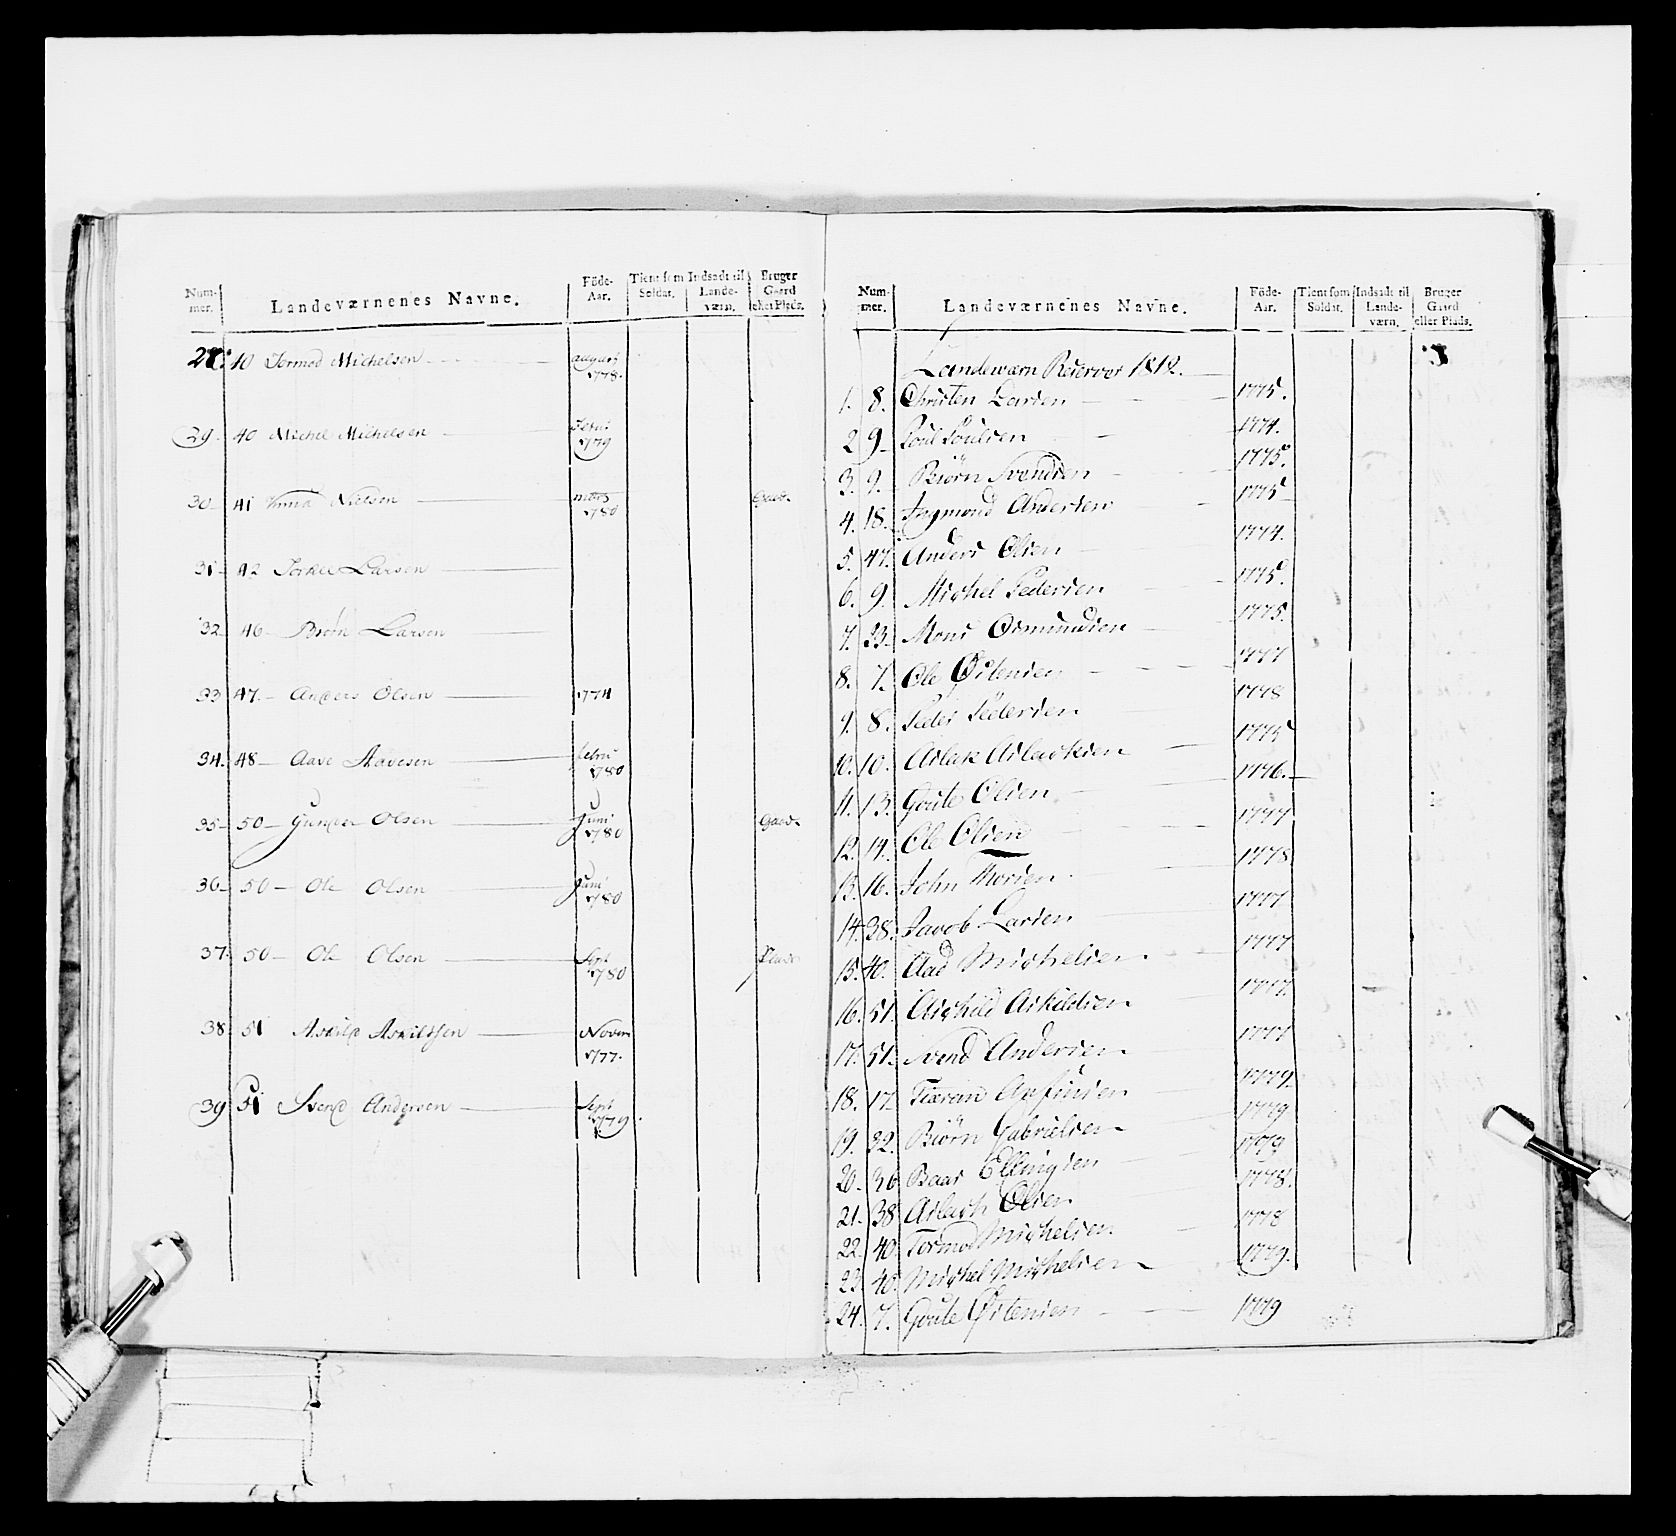 Num- mer. Landeværnenes Navne. Föde- Aar. Tient som Soldat. Indsadt til Lande- værn. Bruger Gaard eller Plads.
28. 40 Tormod Michelsen august 1778.
29. 40 Michel Michelsen Febru 1779
30 41 Nielsen marts 1780 Gaard
31 42 Torkel Larsen
32 46 Biørn Larsen
33 47 Anders Olsen 1774
34. 48 Aave Aavesen Febru 1780
35 50 Gunder Olsen Juni 1780 Gaard
36 50 Ole Olsen Juni 1780
37 50 Ole Olsen Sept 1780 Plads
38 51 Askild Askildsen Novem 1777.
39 51 Svend Andersen Sept 1779.
Num- mer. Landeværnenes Navne. Föde- Aar. Tient som Soldat. Indsadt til Lande- værn. Bruger Gaard eller Plads.
Landeværn Reserver 1812.
1. 8. Christen Larsen 1775.
2 9 Poul Poulsen 1774.
3. 9. Biørn Svendsen 1775.
4. 18. Ingmond Andersen 1775
5. 47. Anders Olsen 1774.
6. 9. Michel Pedersen 1775.
7. 23 Mons Osmundsen 1775.
8. 7. Ole Østensen 1777
9. 8. Peder Pedersen 1778
10. 10. Aslak Aslaksen 1775
11. 13. Goute Olsen 1776.
12. 14. Ole Olsen 1777
13. 16. John Thorsen 1778
14. 38. Jacob Larsen 1777
15. 40. Aad Michelsen 1777
16. 51. Askild Askildsen 1777.
17. 51. Svend Andersen 1777
18. 17. Tiæran Anfinsen 1779.
19. 32. Biørn Gabrielsen 1779
20. 36 Baar Ellingsen 1779
21. 38 Aslach Olsen 1778.
22. 40. Tormod Michelsen 1778
23 40. Michel Michelsen 1779.
24. 7. Goute Østensen 1779